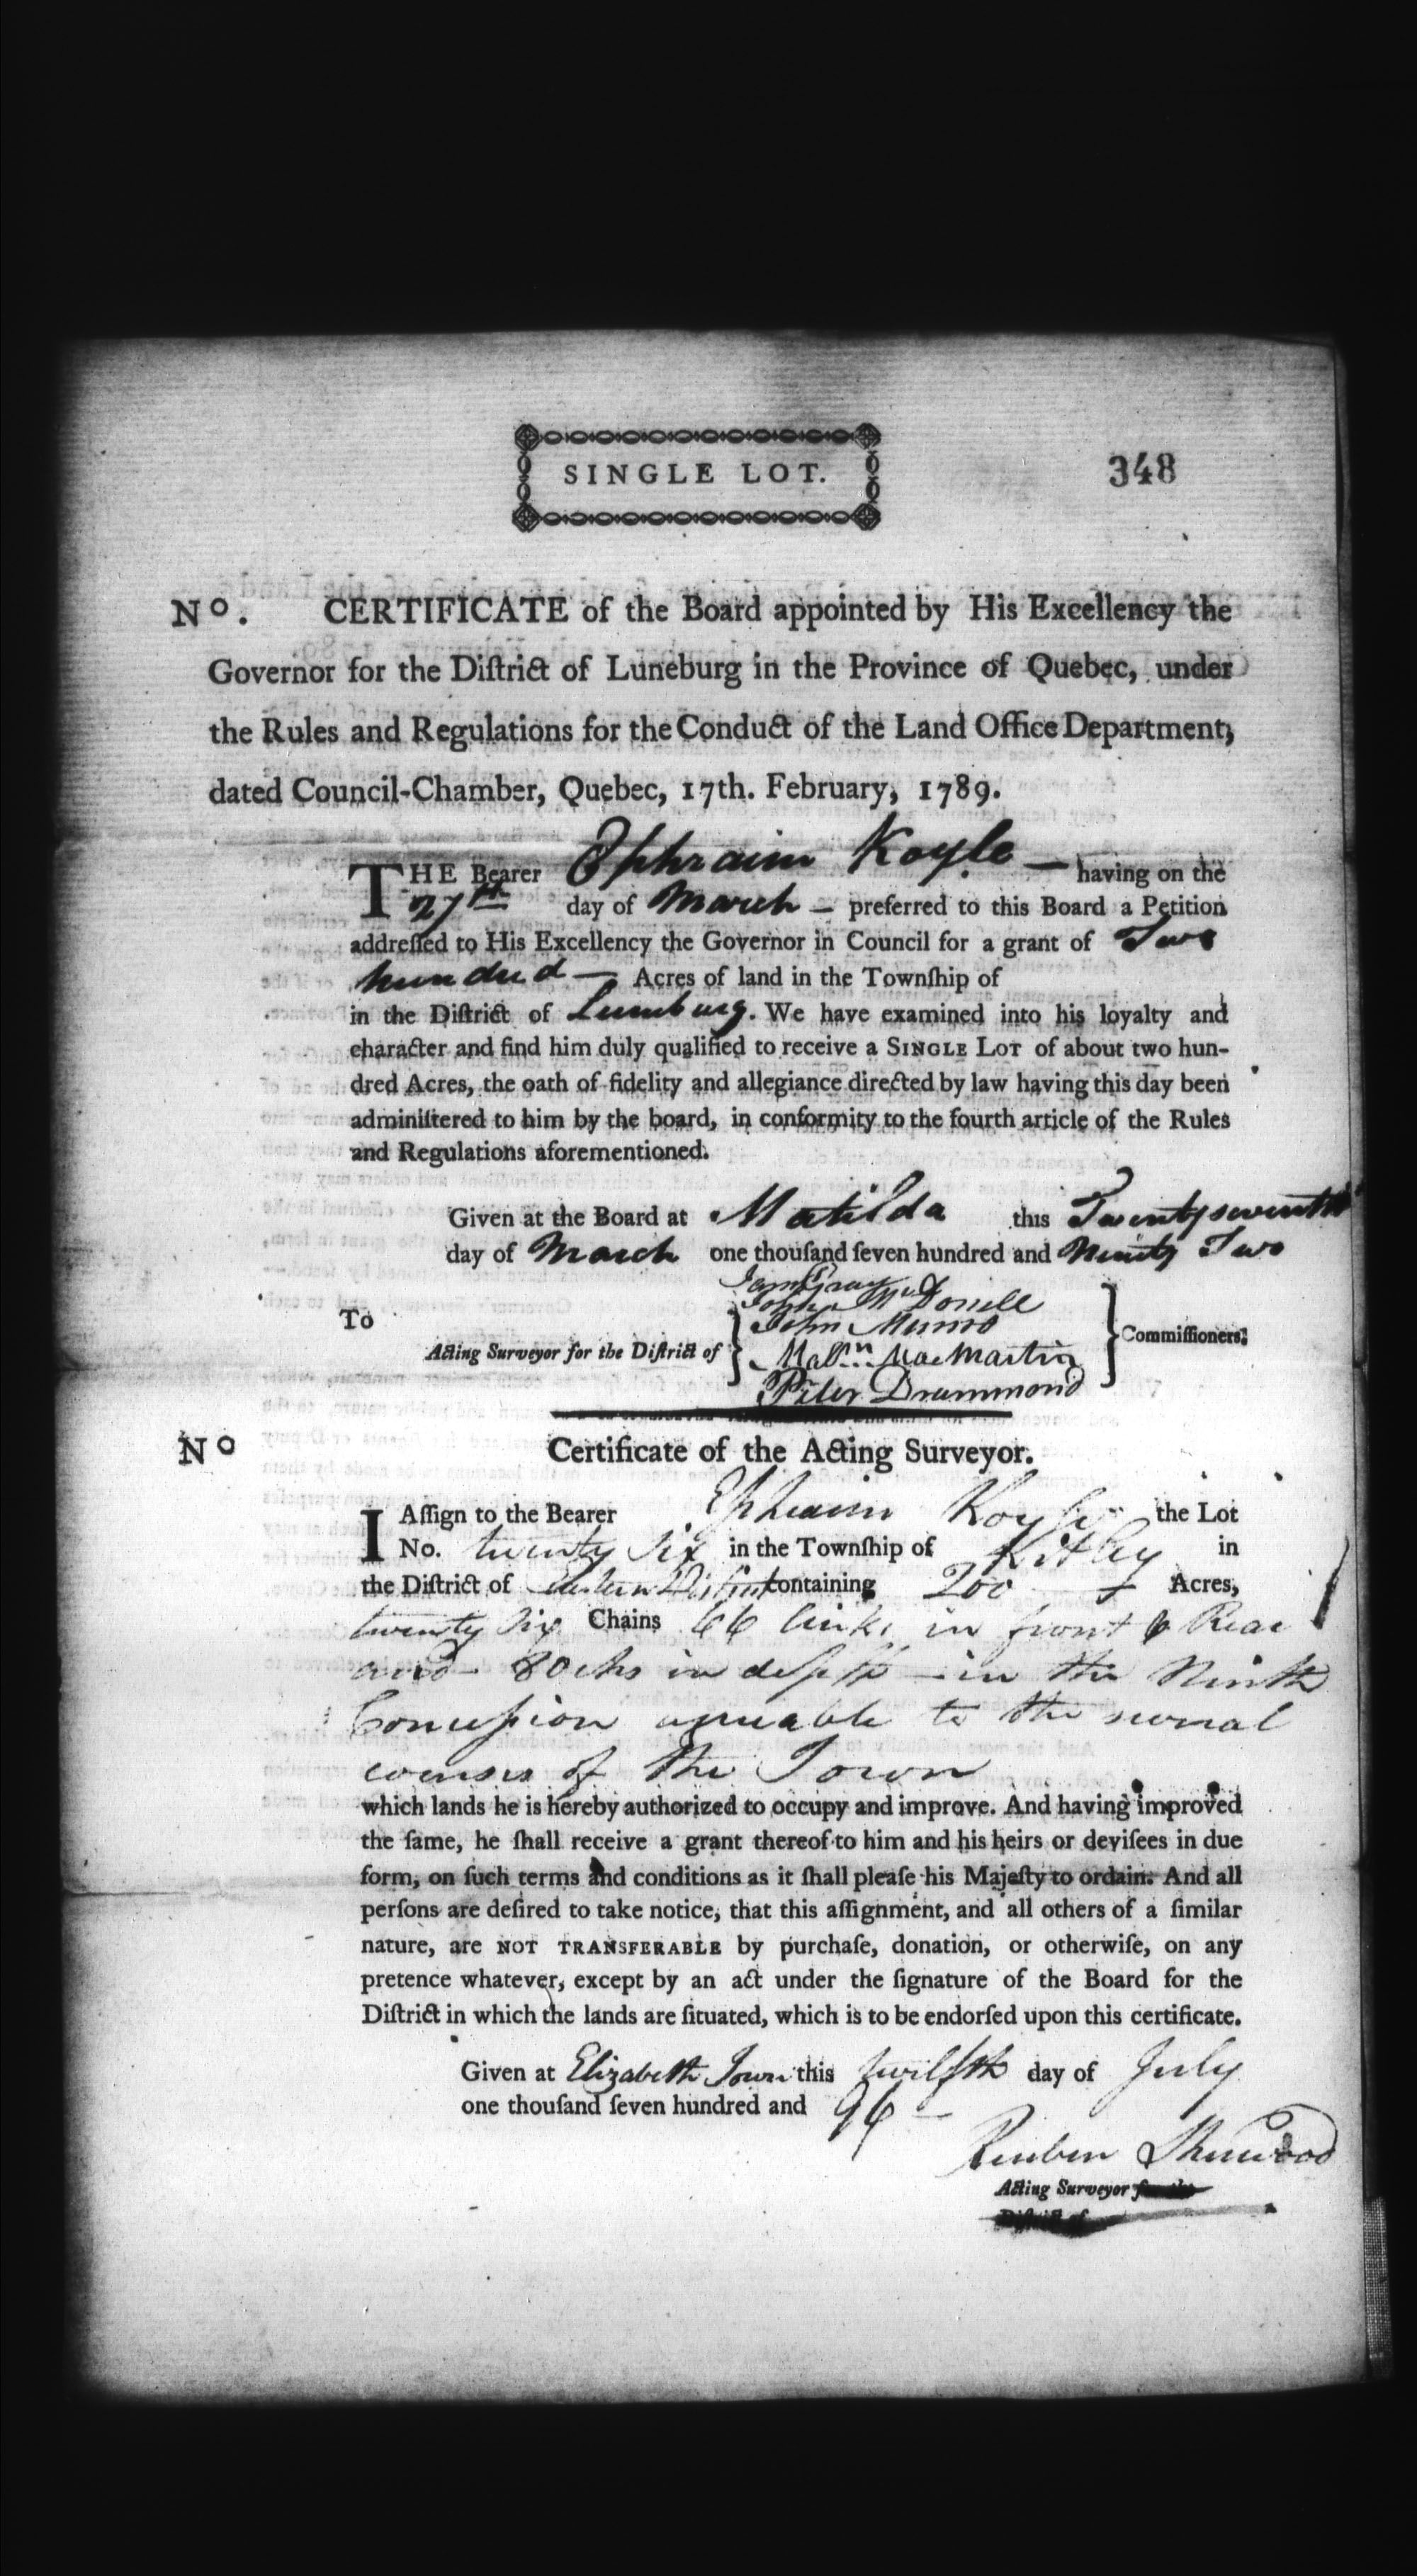 SINGLE LOT.
348
Nº. CERTIFICATE of the Board appointed by His Excellency the
Governor for the Diſtrict of Luneburg in the Province of Quebec, under
the Rules and Regulations for the Conduct of the Land Office Department,
dated Council-Chamber, Quebec, 17th. February, 1789.
THE Bearer Ephraim Koyle — having on the
27th day of March — preferred to this Board a Petition
addreſſed to His Excellency the Governor in Council for a grant of Two
hundred — Acres of land in the Townſhip of
in the Diſtrict of Lunenburg. We have examined into his loyalty and
character and find him duly qualified to receive a SINGLE LOT of about two hun-
dred Acres, the oath of fidelity and allegiance directed by law having this day been
adminiſtered to him by the board, in conformity to the fourth article of the Rules
and Regulations aforementioned.
Given at the Board at Matilda this Twentyseventh
day of March one thouſand ſeven hundred and Ninety Two
Jams Gray
John McDonell
To
John Munro
Acting Surveyor for the Diſtrict of
Commiſſioners;
Malm MacMartin
Peter Drummond
Nº Certificate of the Acting Surveyor.
I Aſſign to the Bearer Ephraim Koyle the Lot
No. twenty Six in the Townſhip of Kitley in
the Diſtrict of Eastern District containing 200 Acres,
twenty Six Chains 66 links in front & Rear
and 80 chs in depth — in the Ninth
Conceſsion agreeable to the several
courses of the Town
which lands he is hereby authorized to occupy and improve. And having improved
the ſame, he ſhall receive a grant thereof to him and his heirs or deviſees in due
form, on ſuch terms and conditions as it ſhall pleaſe his Majeſty to ordain. And all
perſons are deſired to take notice, that this aſſignment, and all others of a ſimilar
nature, are NOT TRANSFERABLE by purchaſe, donation, or otherwiſe, on any
pretence whatever, except by an act under the ſignature of the Board for the
Diſtrict in which the lands are ſituated, which is to be endorſed upon this certificate.
Given at Elizabeth Town this twelfth day of July
one thouſand ſeven hundred and 96 —
Reuben Sherwood
Acting Surveyor for the
Diſtrict of